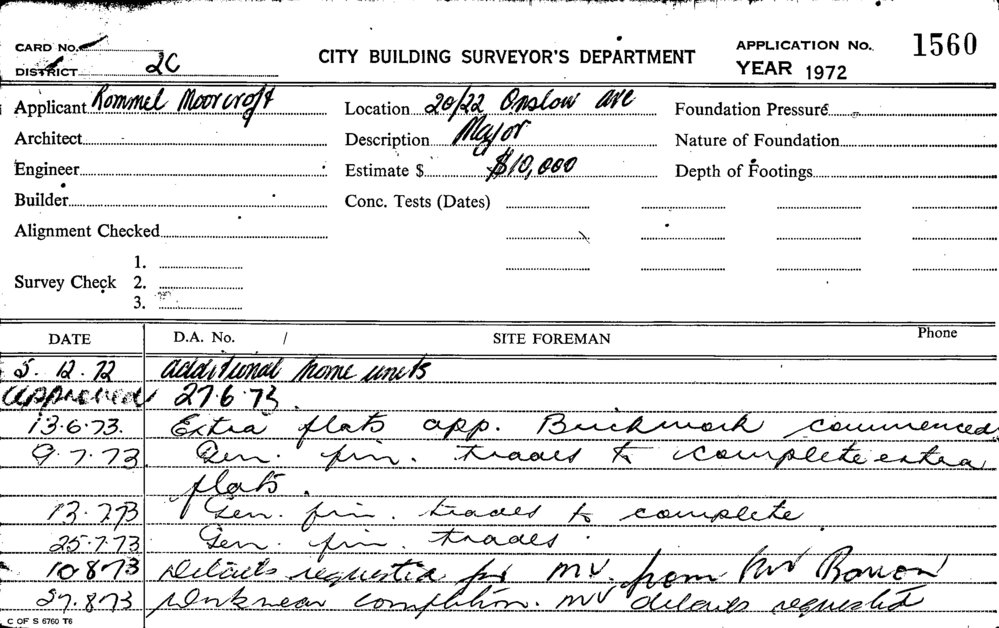 CARD No. CITY BUILDING SURVEYOR'S DEPARTMENT APPLICATION No. 1560
DISTRICT 2C YEAR 1972
Applicant Rommel Moorcroft Location 20/22 Onslow Ave Foundation Pressure
Architect Description Major Nature of Foundation
Engineer Estimate $ $10,000 Depth of Footings
Builder Conc. Tests (Dates)
Alignment Checked
1.
Survey Check 2.
3.
DATE D.A. No. / SITE FOREMAN Phone
5.12.72 additional home units
approved 27.6.73.
13.6.73. Extra flats app. Brickwork commenced
9.7.73 Gen. fin. trades to complete extra
flats.
13.7.73 Gen. fin. trades to complete
25.7.73 Gen. fin. trades.
10.8.73 Details requested for MV. from Mr
27.8.73 Work near completion. MV details requested
C OF S 6760 T6